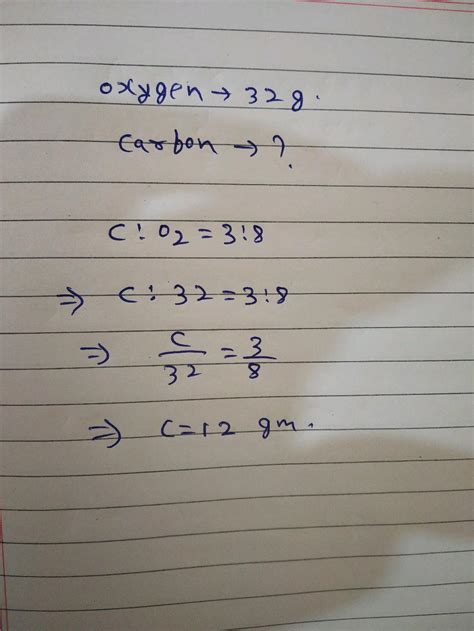 oxygen → 32 g.
carbon → ?
C : O2 = 3:8
⇒ C : 32 = 3:8
⇒ C/32 = 3/8
⇒ C = 12 gm.